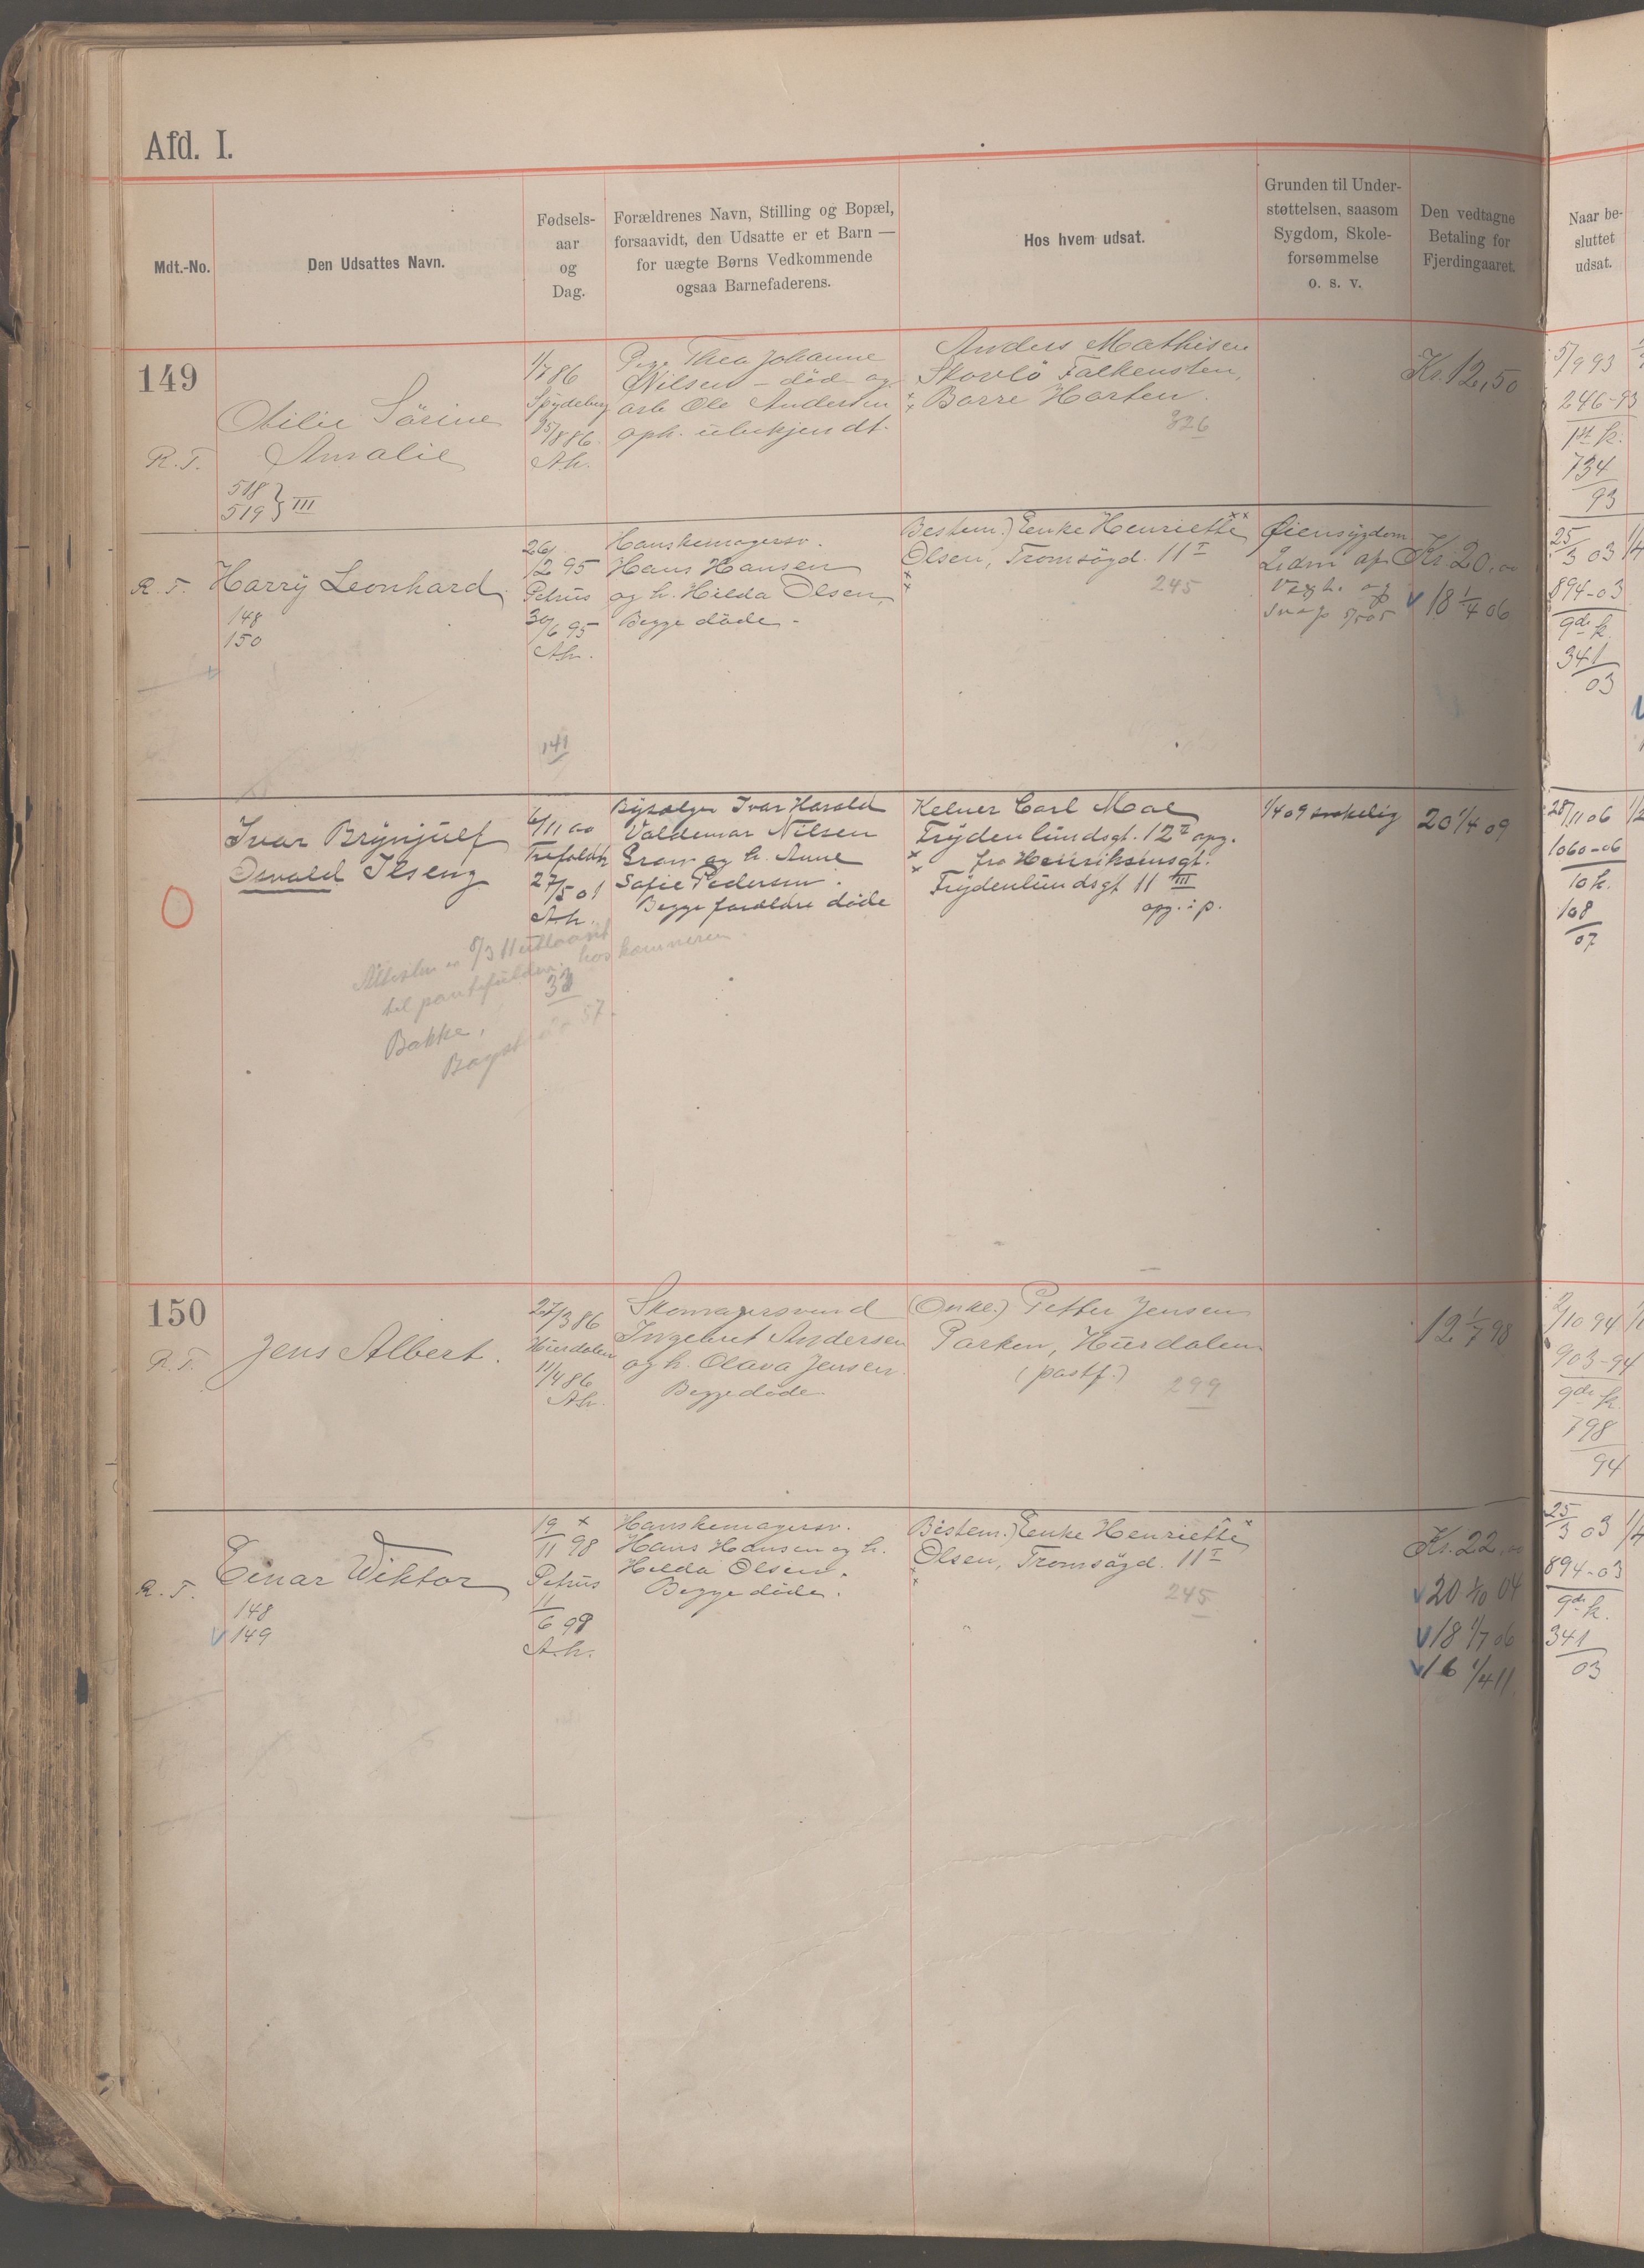 Afd. I.
Mdt.-No.
Den Udsattes Navn.
Fødsels-
aar
og
Dag.
Forældrenes Navn, Stilling og Bopæl,
forsaavidt, den Udsatte er et Barn —
for uægte Børns Vedkommende
ogsaa Barnefaderens.
Hos hvem udsat.
Grunden til Under-
støttelsen, saasom
Sygdom, Skole-
forsømmelse
o. s. v.
Den vedtagne
Betaling for
Fjerdingaaret.
Naar be-
sluttet
udsat.
149
R. T.
Otilie Sörine
Amalie
518
519 } III
1/7 86
Spydeberg
15/8 86
A.h.
Thea Johanne
Nilsen - död og
arb Ole Andersen
oph. ubekjendt.
Anders Mathisen
Skovlö Falkensten,
Borre Horten.
826
Kr. 12,50
5/9 93
246-93
1st k.
734
93
R. T.
Harry Leonhard
148
150
26/
12 95
Petrus
30/6 95
A.h.
141
Hanskemagersv.
Hans Hansen
og h. Hilda Olsen,
Begge döde.
Bestem.) Enke Henriette
Olsen, Tromsögd. 11 I
245
Öiensygdom
Kr. 20,00
18 1/4 06
25/3 03
894-03
9de k.
341
03
Ivar Brynjulf
Osvald Ilseng
6/11 00
Trefoldh
27/5 01
A.h.
Bysælger Ivar Harald
Valdemar Nilsen
Gran og h. Anne
Sofie Pedersen.
Begge foreldre döde
Kelner Carl Moe
Frydenlundsgt. 12 II opg.
fra Henriksensgt.
Frydenlundsgt 11 III
opg. i p.
1/4 09 svakelig
20 1/4 09
28/11 06
1060-06
10 k.
108
07
33
Bakke,
150
R. T.
Jens Albert.
27/3 86
Hurdalen
11/4 86
A.h.
Skomagersvend
Ingebret Andersen
og h. Olava Jensen
Begge döde.
(Onkel) Petter Jensen
Parken, Hurdalen
(postf.)
299
12 1/7 98
2/10 94
903-94
9de k.
798
94
R. T.
Einar Wiktor
148
149
19 x
11 98
Petrus
11
6 98
A.h.
Hanskemagersv.
Hans Hansen og h.
Hilda Olsen.
Begge döde.
Bestem.) Enke Henriette
Olsen, Tromsögd. 11 I
245
Kr. 22,00
20 1/10 04
18 1/7 06
16 1/4 11
25/3 03
894-03
9de k.
341
03